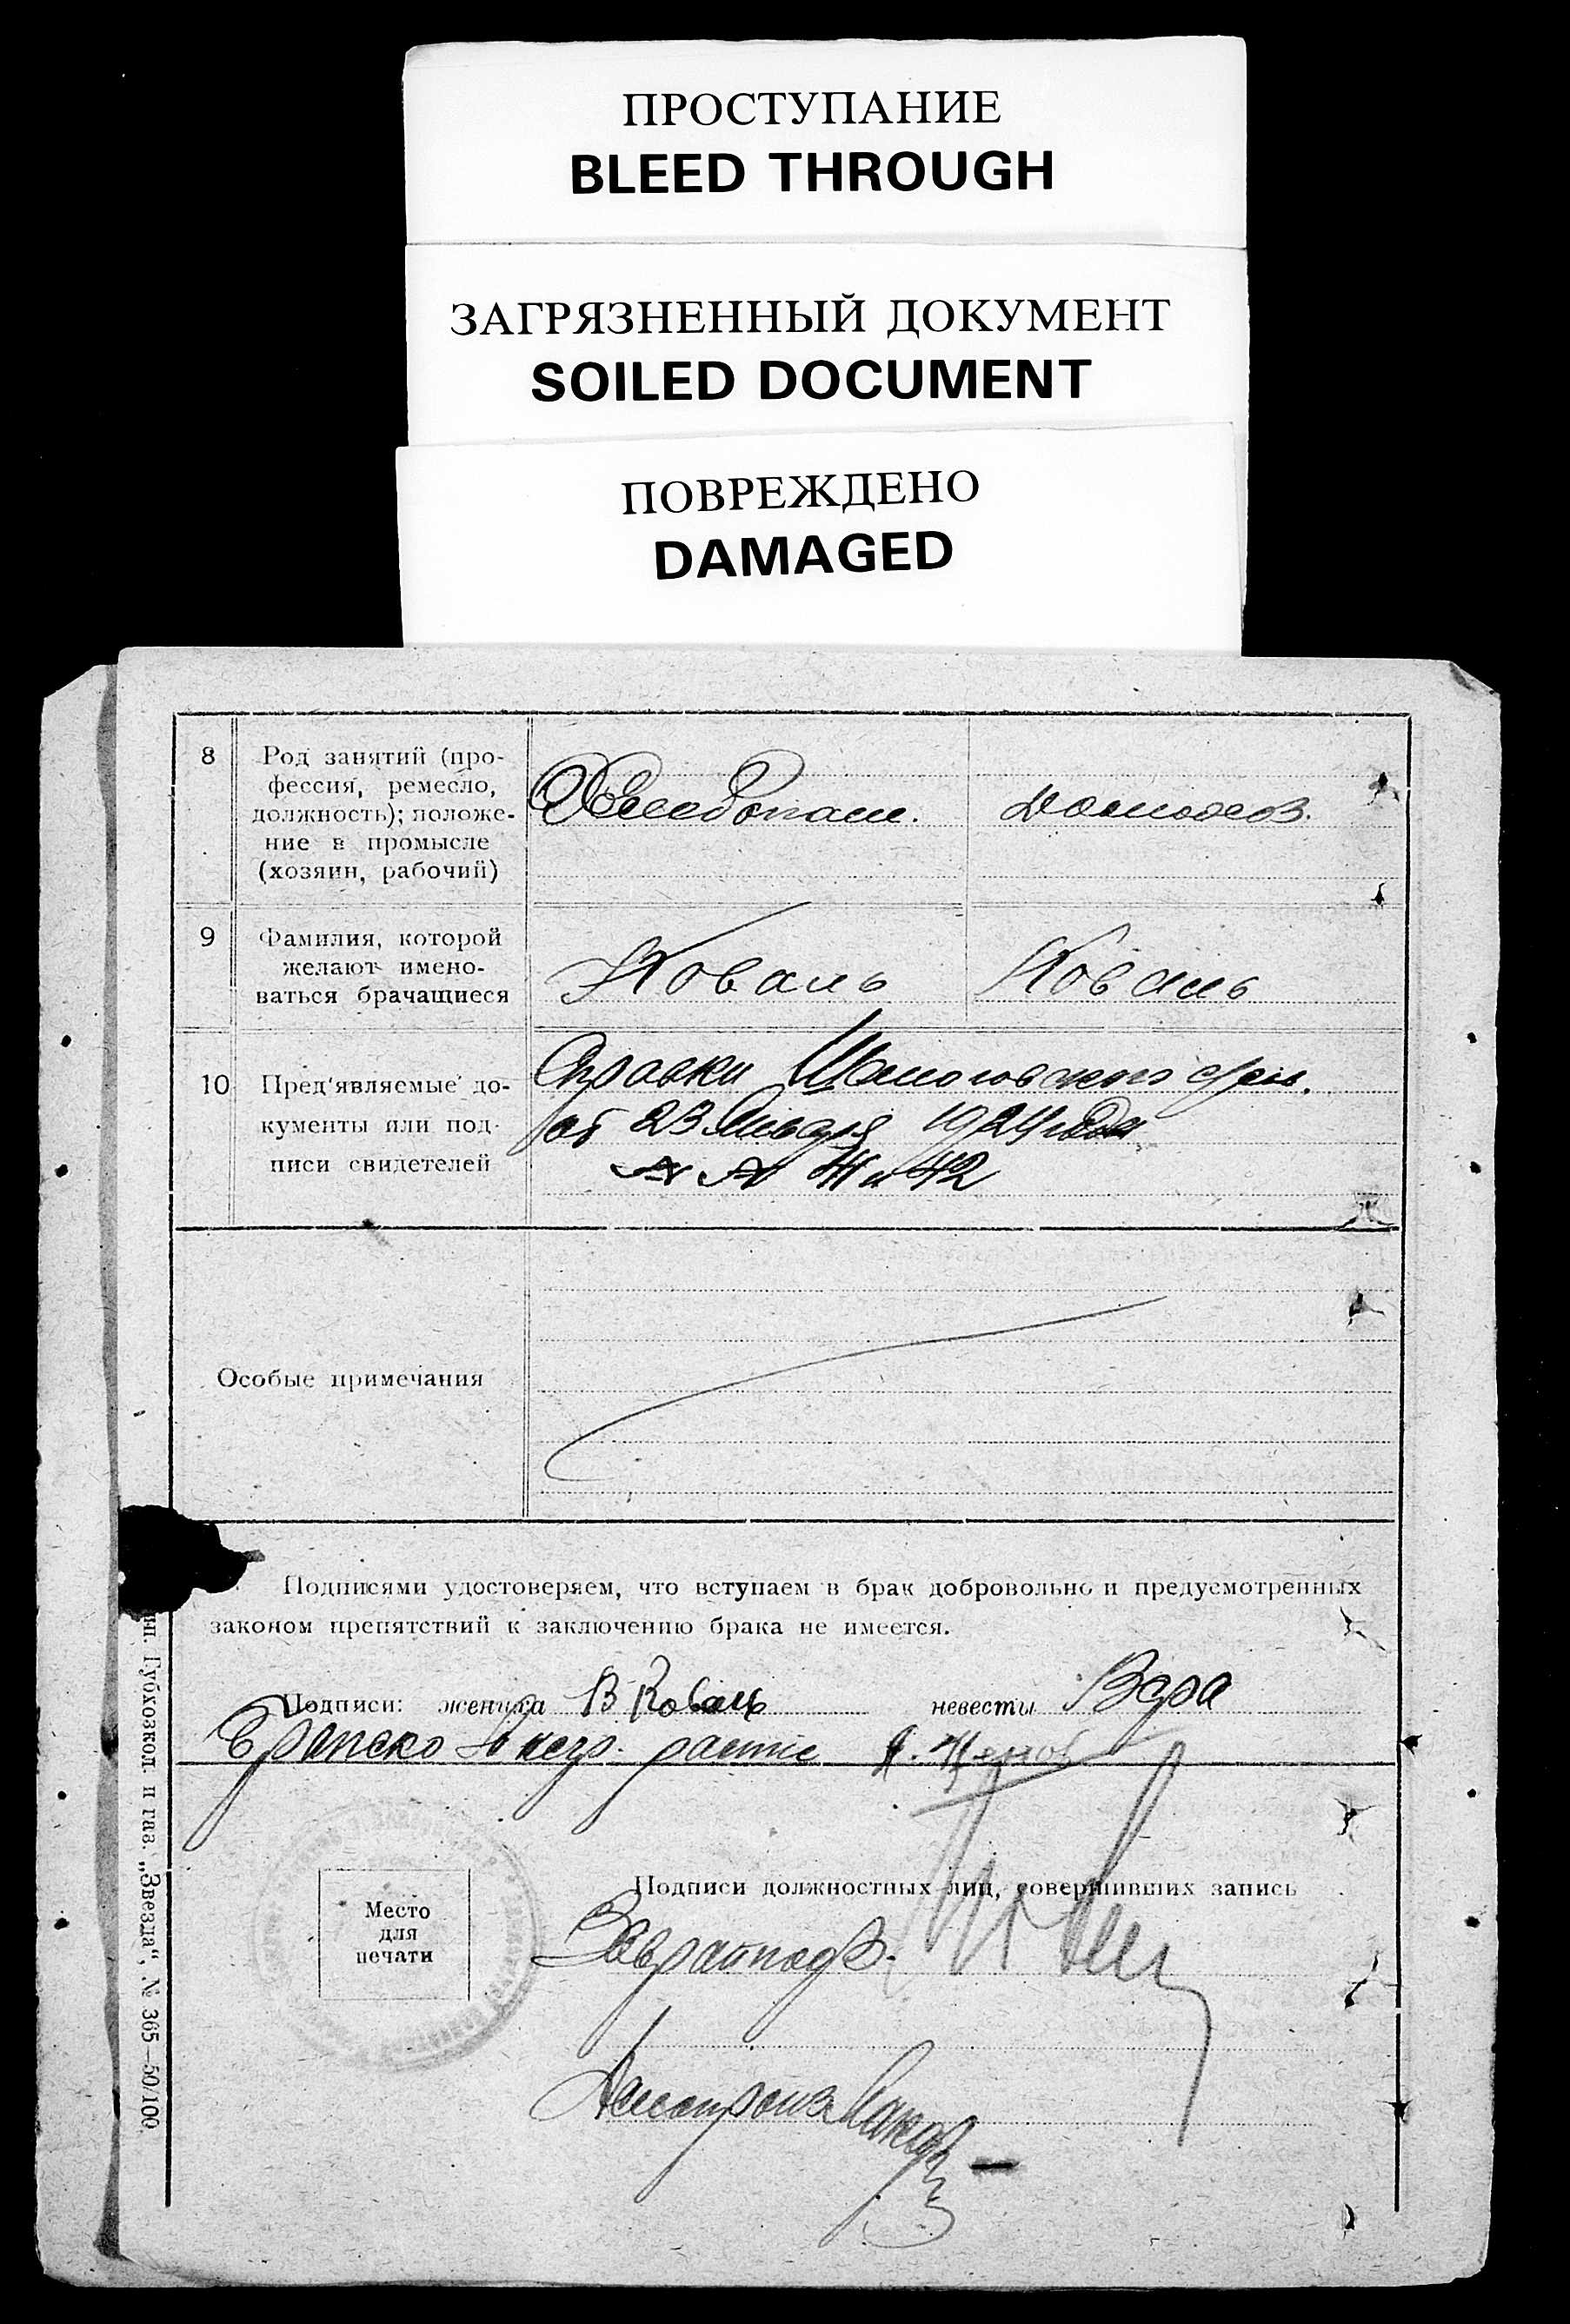 ПРОСТУПАНИЕ
BLEED THROUGH
ЗАГРЯЗНЕННЫЙ ДОКУМЕНТ
SOILED DOCUMENT
ПОВРЕЖДЕНО
DAMAGED
8
Род занятий (про-
фессия, ремесло,
должность); положе-
ние в промысле
(хозяин, рабочий)
Хлебопаш.
домохоз.
9
Фамилия, которой
желают имено-
ваться брачащиеся
Коваль
Коваль
10
Пред'являемые до-
кументы или под-
писи свидетелей
Справки
от 23 Января 1924 года
№ № 41 и 42
Особые примечания
Подписями удостоверяем, что вступаем в брак добровольно и предусмотренных
законом препятствий к заключению брака не имеется.
Подписи: жениха В Коваль невесты Вера
Подписи должностных лиц, совершивших запись
Место
для
печати
Губхозкол. и газ. „Звезда“, № 365—50/100.